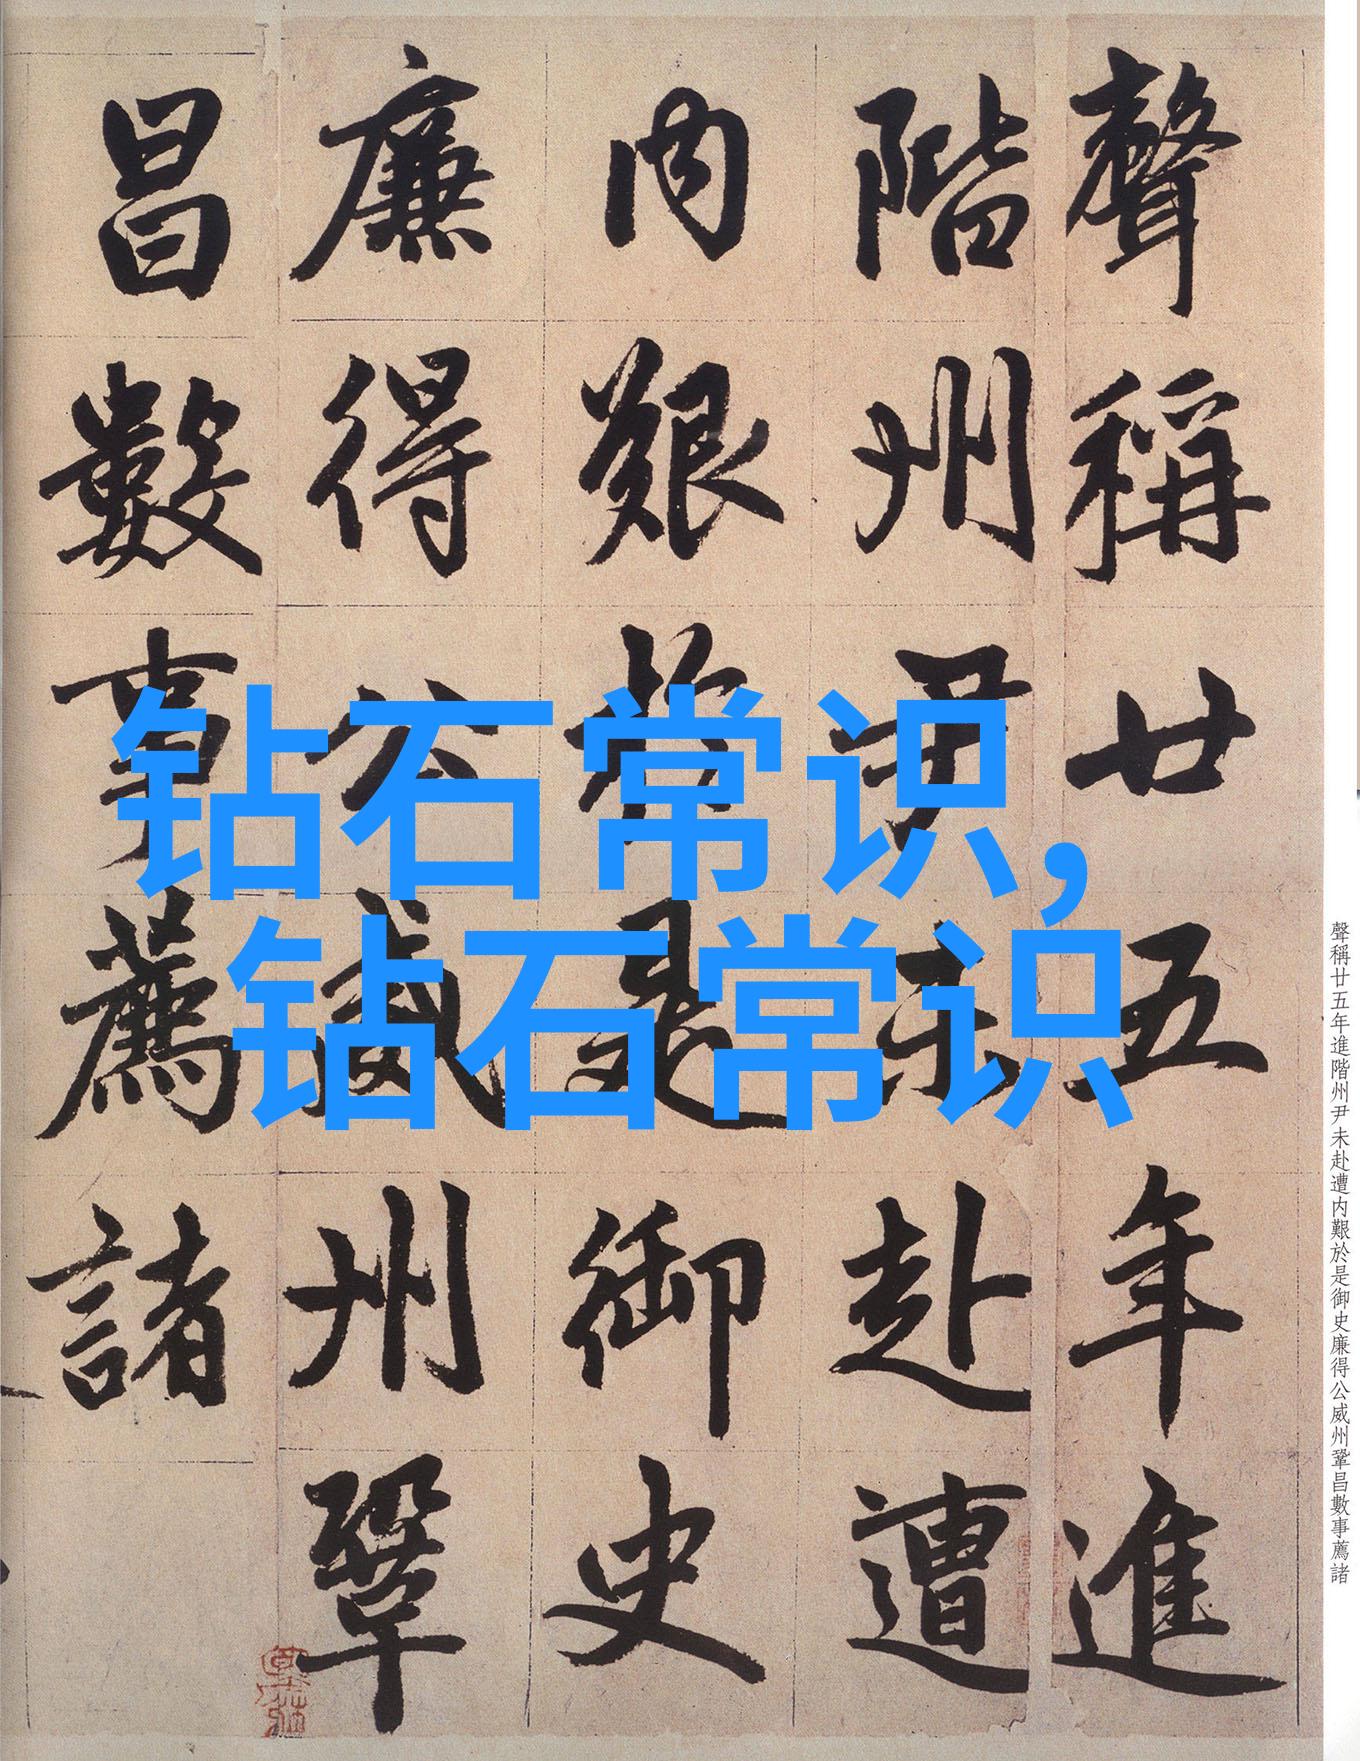 聲稱廿五年進
階州尹未赴遭
内艱於是御史
廉得公威州鞏
昌數事薦諸
钻石常识，
钻石常识
聲稱廿五年進階州尹未赴遭内艱於是御史廉得公威州鞏昌數事薦諸